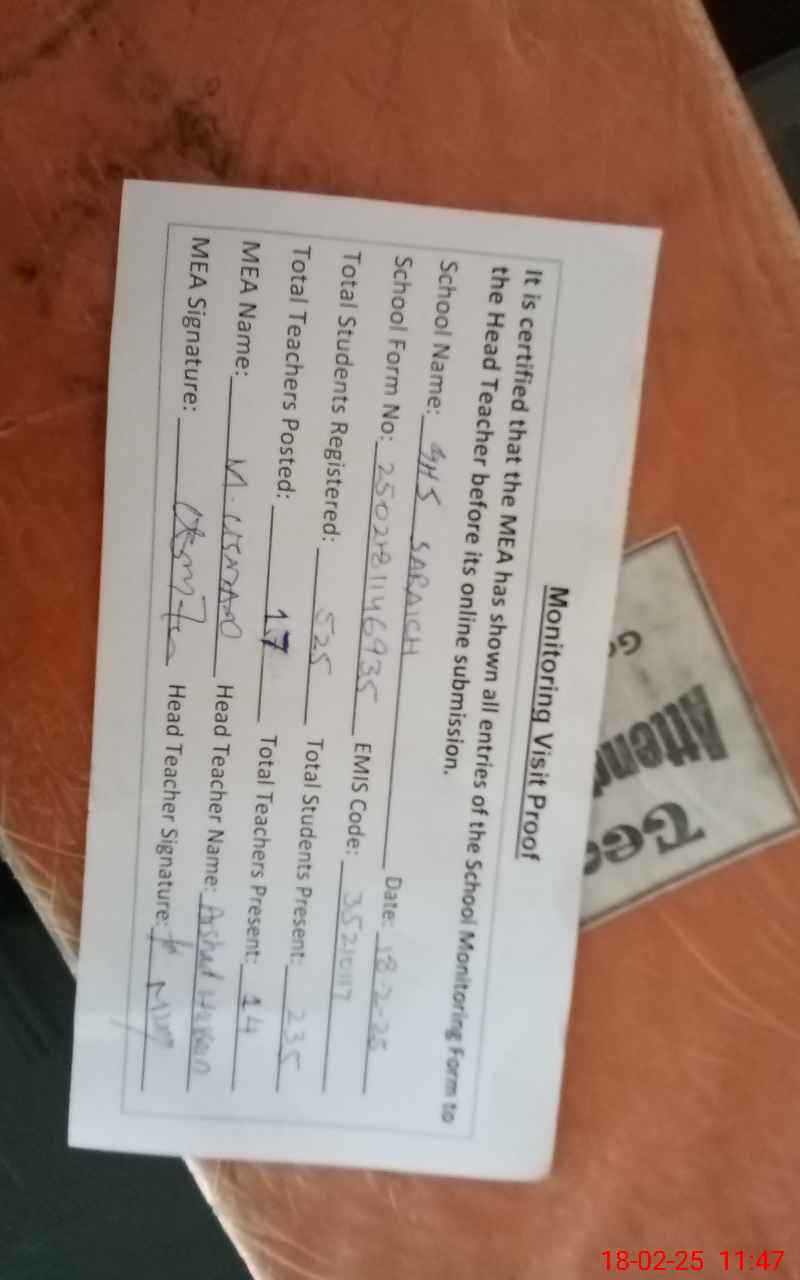 Monitoring Visit Proof
It is certified that the MEA has shown all entries of the School Monitoring Form to
the Head Teacher before its online submission.
School Name: GHS SARAICH Date: 18-2-25
School Form No: 2502181146935 EMIS Code: 35210117
Total Students Registered: 525 Total Students Present: 235
Total Teachers Posted: 17 Total Teachers Present: 14
MEA Name: M. USMAN Head Teacher Name: Arshad
MEA Signature: Head Teacher Signature:
Attend
18-02-25 11:47